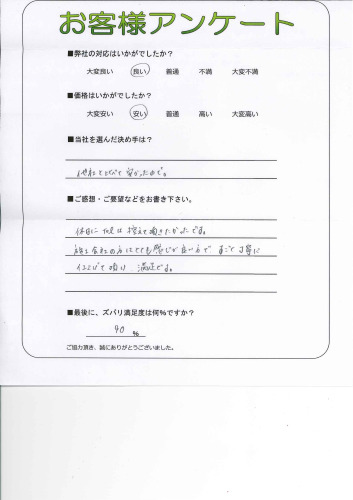 お客様アンケート
■弊社の対応はいかがでしたか？
大変良い 良い 普通 不満 大変不満
■価格はいかがでしたか？
大変安い 安い 普通 高い 大変高い
■当社を選んだ決め手は？
他社とくらべて安かったので。
■ご感想・ご要望などをお書き下さい。
休日に TELは 控えて頂きたかったです。
施工会社の方はとても感じが良い方で すごく丁寧に
して頂け 満足です。
■最後に、ズバリ満足度は何%ですか？
90 %
ご協力頂き、誠にありがとうございました。